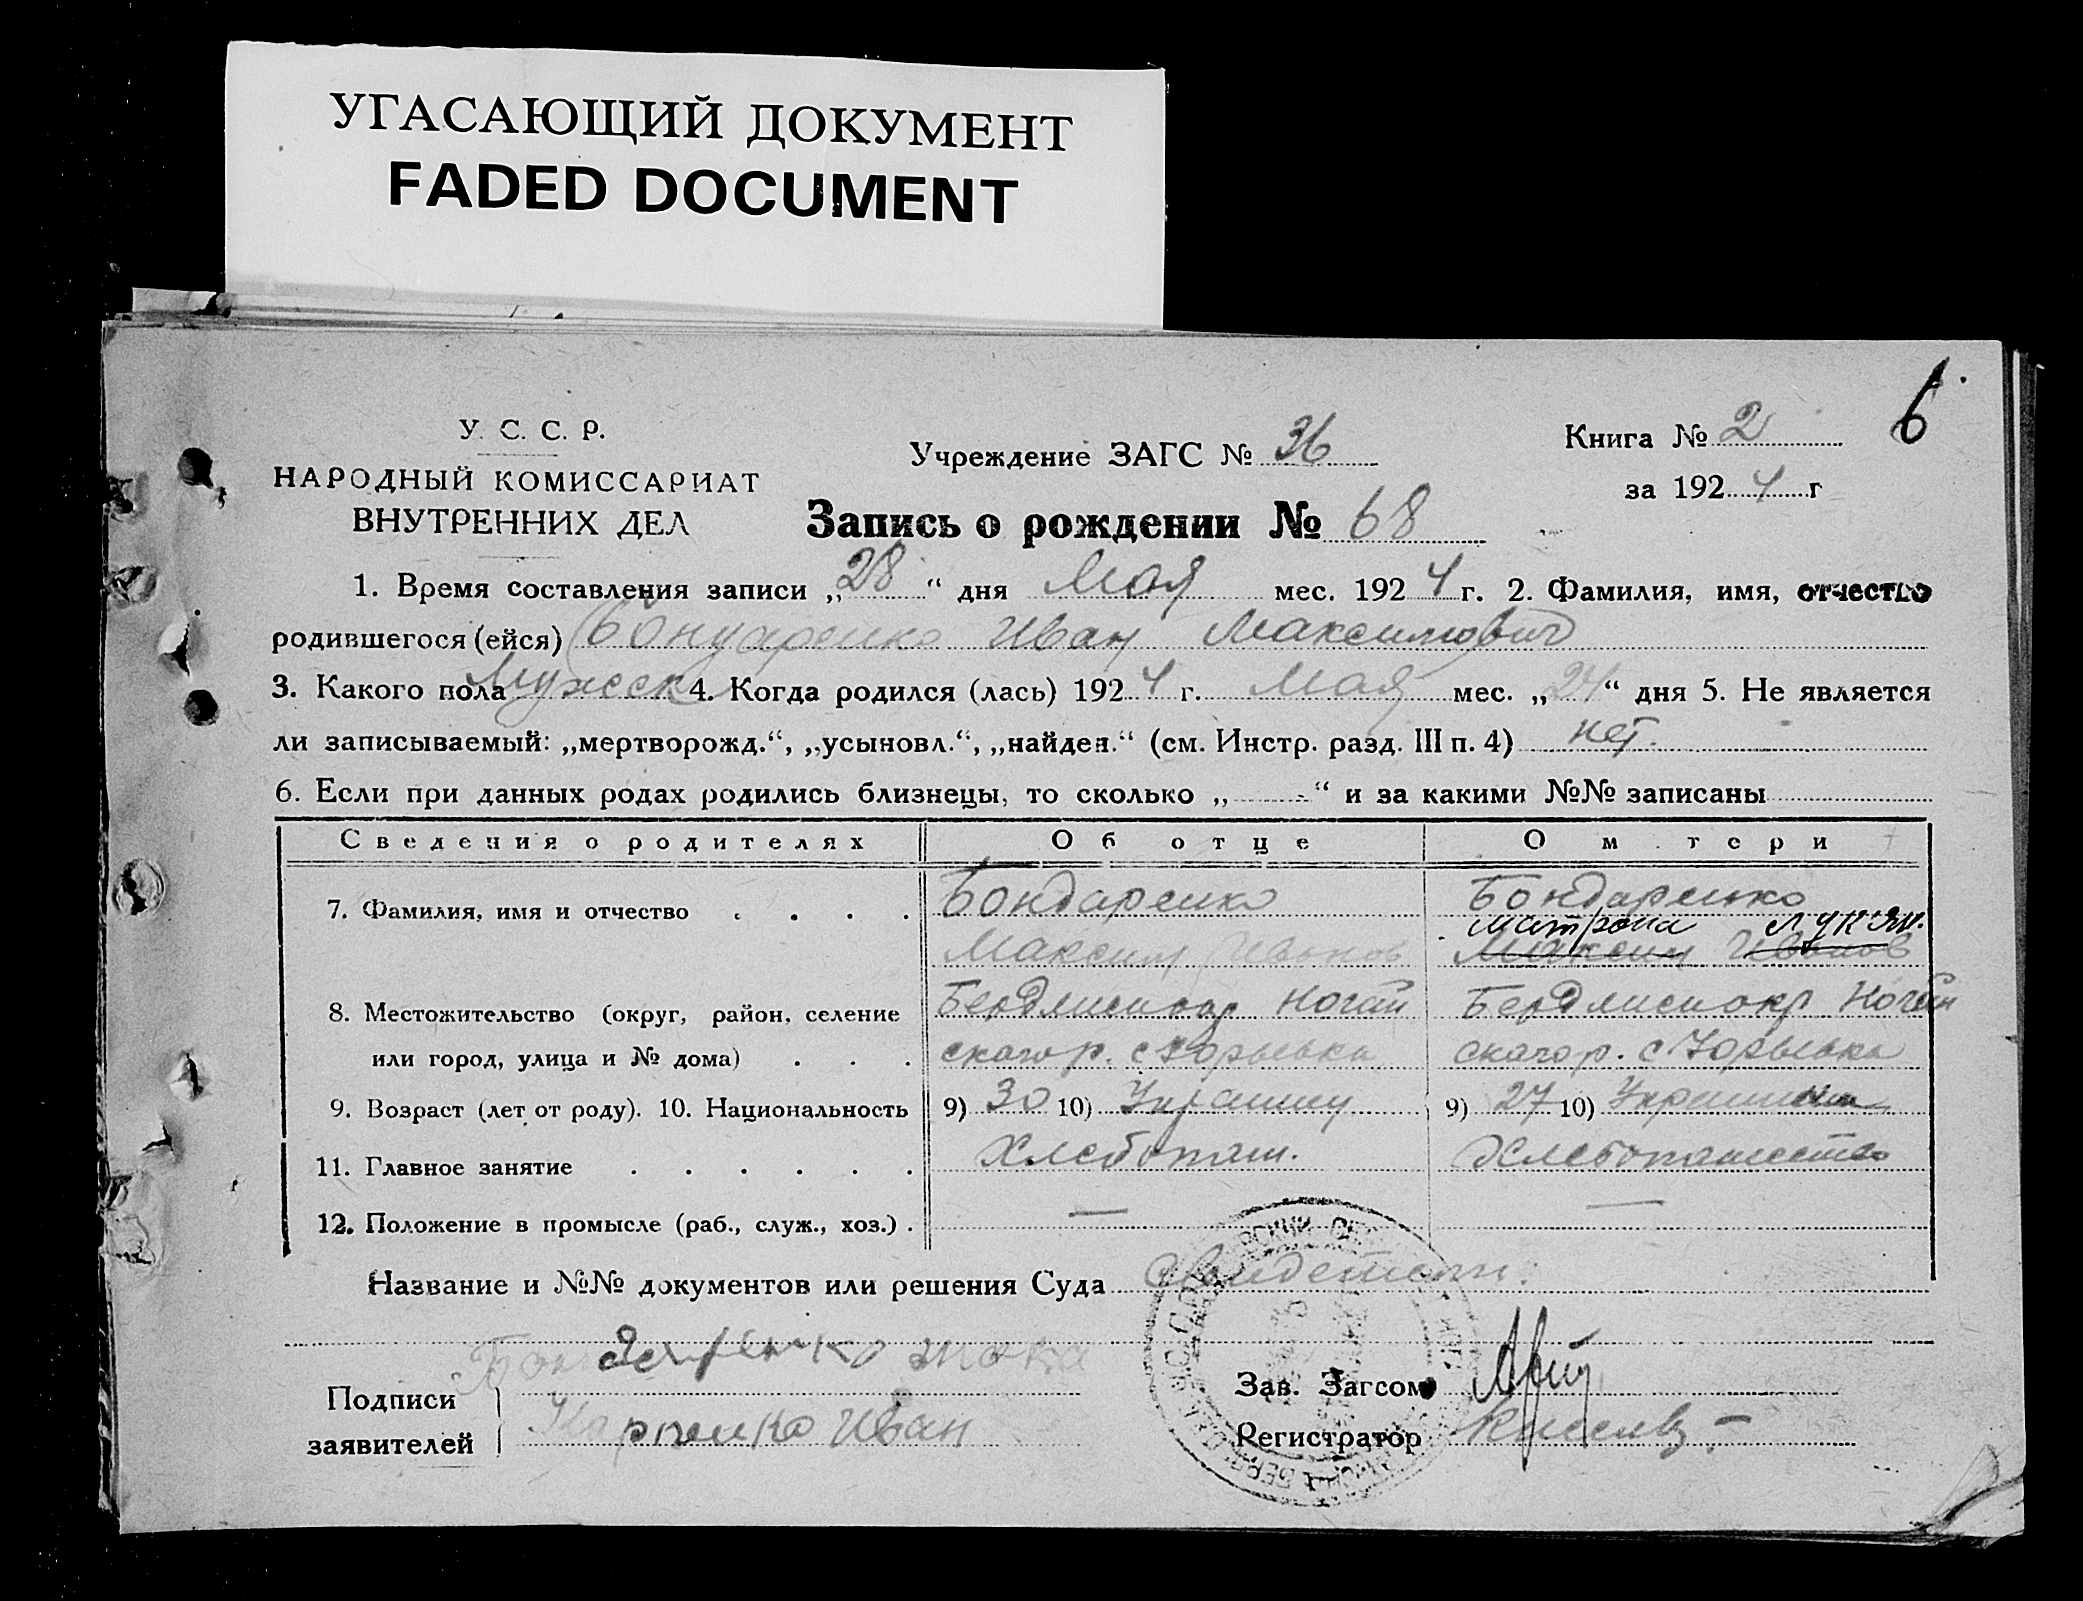 УГАСАЮЩИЙ ДОКУМЕНТ
FADED DOCUMENT
6
У. С. С. Р.
НАРОДНЫЙ КОМИССАРИАТ
ВНУТРЕННИХ ДЕЛ
Учреждение ЗАГС № 36
Книга № 2
за 1924 г
Запись о рождении № 68
1. Время составления записи „28“ дня Мая мес. 1924 г. 2. Фамилия, имя, отчество
родившегося (ейся) Бондаренко Иван Максимович
3. Какого пола Мужеск 4. Когда родился (лась) 1924 г. Мая мес. „24“ дня 5. Не является
ли записываемый: „мертворожд.“, „усыновл.“, „найден.“ (см. Инстр. разд. III п. 4) нет.
6. Если при данных родах родились близнецы, то сколько „ - “ и за какими №№ записаны
Сведения о родителях Об отце О м тери
7. Фамилия, имя и отчество . . . . Бондаренко Бондаренко
матрона Лукян.
Максим Иванов Максим Иванов
8. Местожительство (округ, район, селение Ногай Ногай
или город, улица и № дома) . . . скаго р. с скаго р. с
9. Возраст (лет от роду). 10. Национальность 9) 30 10) Украинц 9) 27 10)
11. Главное занятие . . . . . . Хлебопаш. Хлебопашество
12. Положение в промысле (раб., служ., хоз.) . — —
Название и №№ документов или решения Суда
Подписи
заявителей
Иван
Зав. Загсом
Регистратор